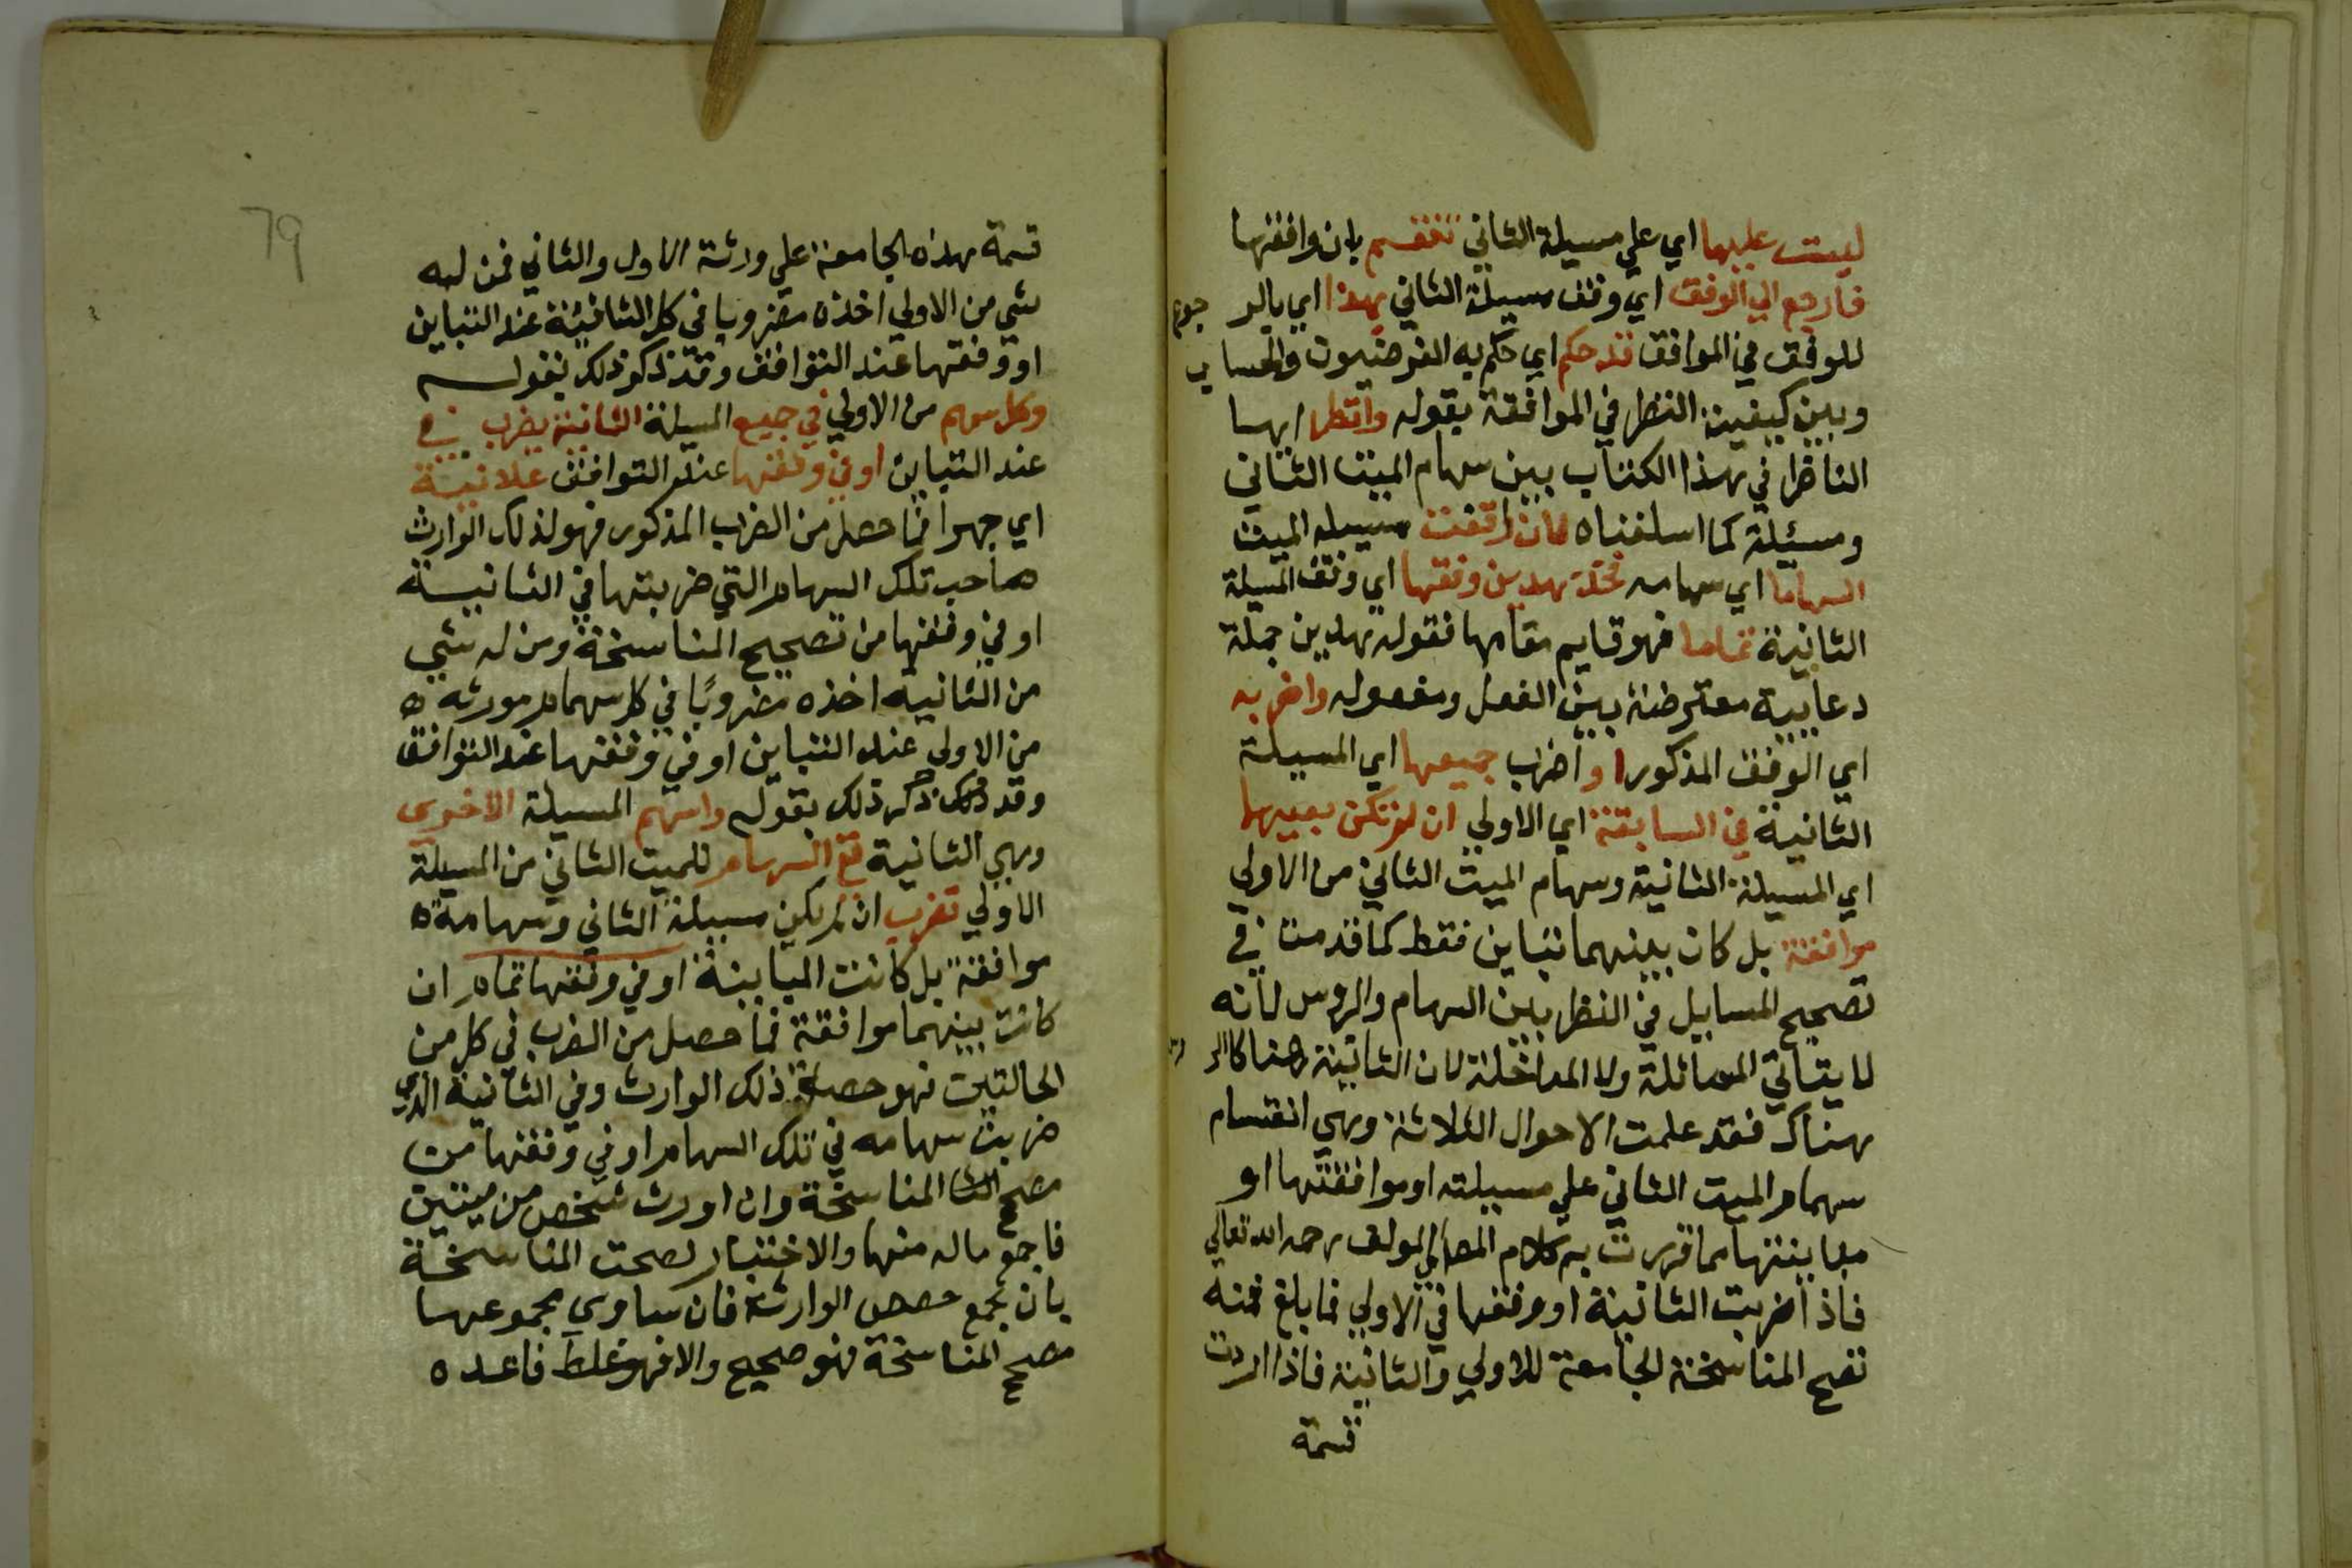 ليست عليها اي علي مسيلة الثاني تنقسم بان وافقتها
فارجع الي الوفق اي وفق مسيلة الثاني بهذا اي بالر جوع
للوفق في الموافق قد حكم اي حكم به الفرضيون والحساب
وبين كيفية النظر في الموافقة بقوله وانظر ايها
الناظر في هذا الكتاب بين سهام الميت الثاني
ومسئلة كما اسلفناه فان وافقت مسيلة الميت
السهاما اي سهامه فخذ هديت وفقها اي وفق المسيلة
الثانية تماما فهو قايم مقامها فقوله هديت جملة
دعايية معترضة بين الفعل ومفعوله واضربه
اي الوفق المذكور او اضرب جميعها اي المسيلة
الثانية في السابقة اي الاولي ان لم تكن بينهما
اي المسيلة الثانية وسهام الميت الثاني من الاولي
موافقة بل كان بينهما تباين فقط كما قدمت في
تصحيح المسايل في النظر بين السهام والروس لانه
لا يتاتي المماثلة ولا المداخلة لان الثانية هنا كالر
هناك فقد علمت الاحوال الثلاثة وهي انقسام
سهام الميت الثاني علي مسيلته او موافقتها او
مباينتها مما قررت به كلام المولف رحمه الله تعالي
فاذا ضربت الثانية او وفقها في الاولي فما بلغ فمنه
تصح المناسخة الجامعة للاولي والثانية فاذا اردت
قسمة
79
قسمة هذه الجامعة علي ورثة الاول والثاني فمن له
شي من الاولي اخذه مضروبا في كل الثانية عند التباين
او وفقها عند التوافق وقد ذكر ذلك بقوله
وكل سهم من الاولي في جميع المسيلة الثانية يضرب في
عند التباين او في وفقها عند التوافق علانية
اي جهرا فما حصل من الضرب المذكور فهو لذلك الوارث
صاحب تلك السهام التي ضربتها في الثانية
او في وفقها من تصحيح المناسخة ومن له شي
من الثانية اخذه مضروبًا في كل سهام مورثه
من الاولي عند التباين او في وفقها عند التوافق
وقد ذكر ذلك بقوله واسهم المسيلة الاخري
وهي الثانية في السهام للميت الثاني من المسيلة
الاولي تضرب ان لم يكن مسيلة الثاني وسهامه
موافقة بل كانت المباينة او في وفقها تمام ان
كانت بينهما موافقة فما حصل من الضرب في كل من
الحالتين فهو حصة ذلك الوارث وفي الثانية الذي
ضربت سهامه في تلك السهام او في وفقها من
مصح المناسخة وان اورث شخص من ميتين
فاجمع ماله منها والاختبار لصحت المناسخة
بان تجمع حصص الوارثة فان ساوي مجموعها
مصح المناسخة فهو صحيح والا فهو غلط فاعده